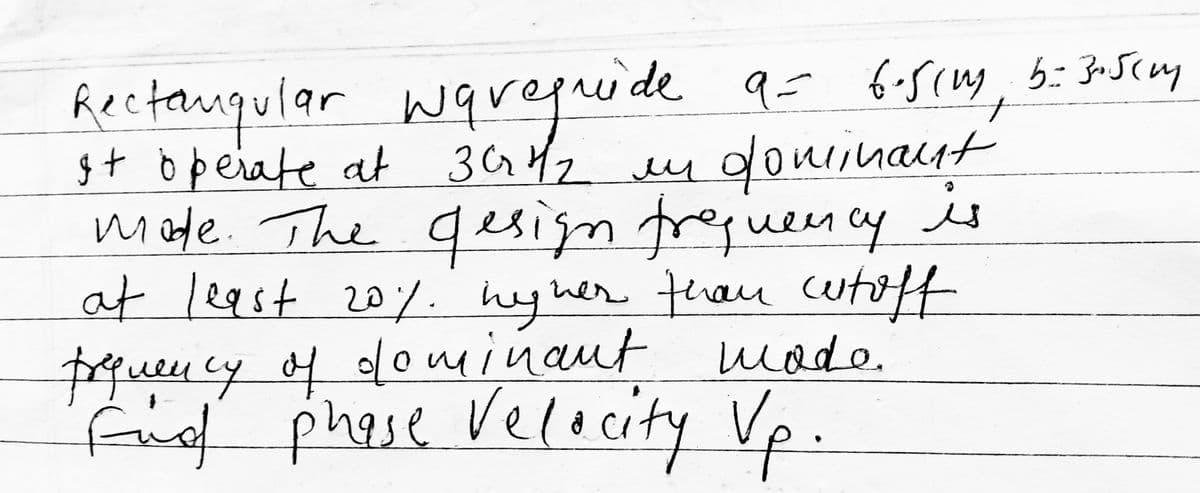 Rectangular waveguide a= 6.5cm, b= 3.5cm
It operate at 3GHz in dominant
mode. The design frequency is
at least 20%. higher than cutoff
frequency of dominant mode.
find phase velocity Vp.